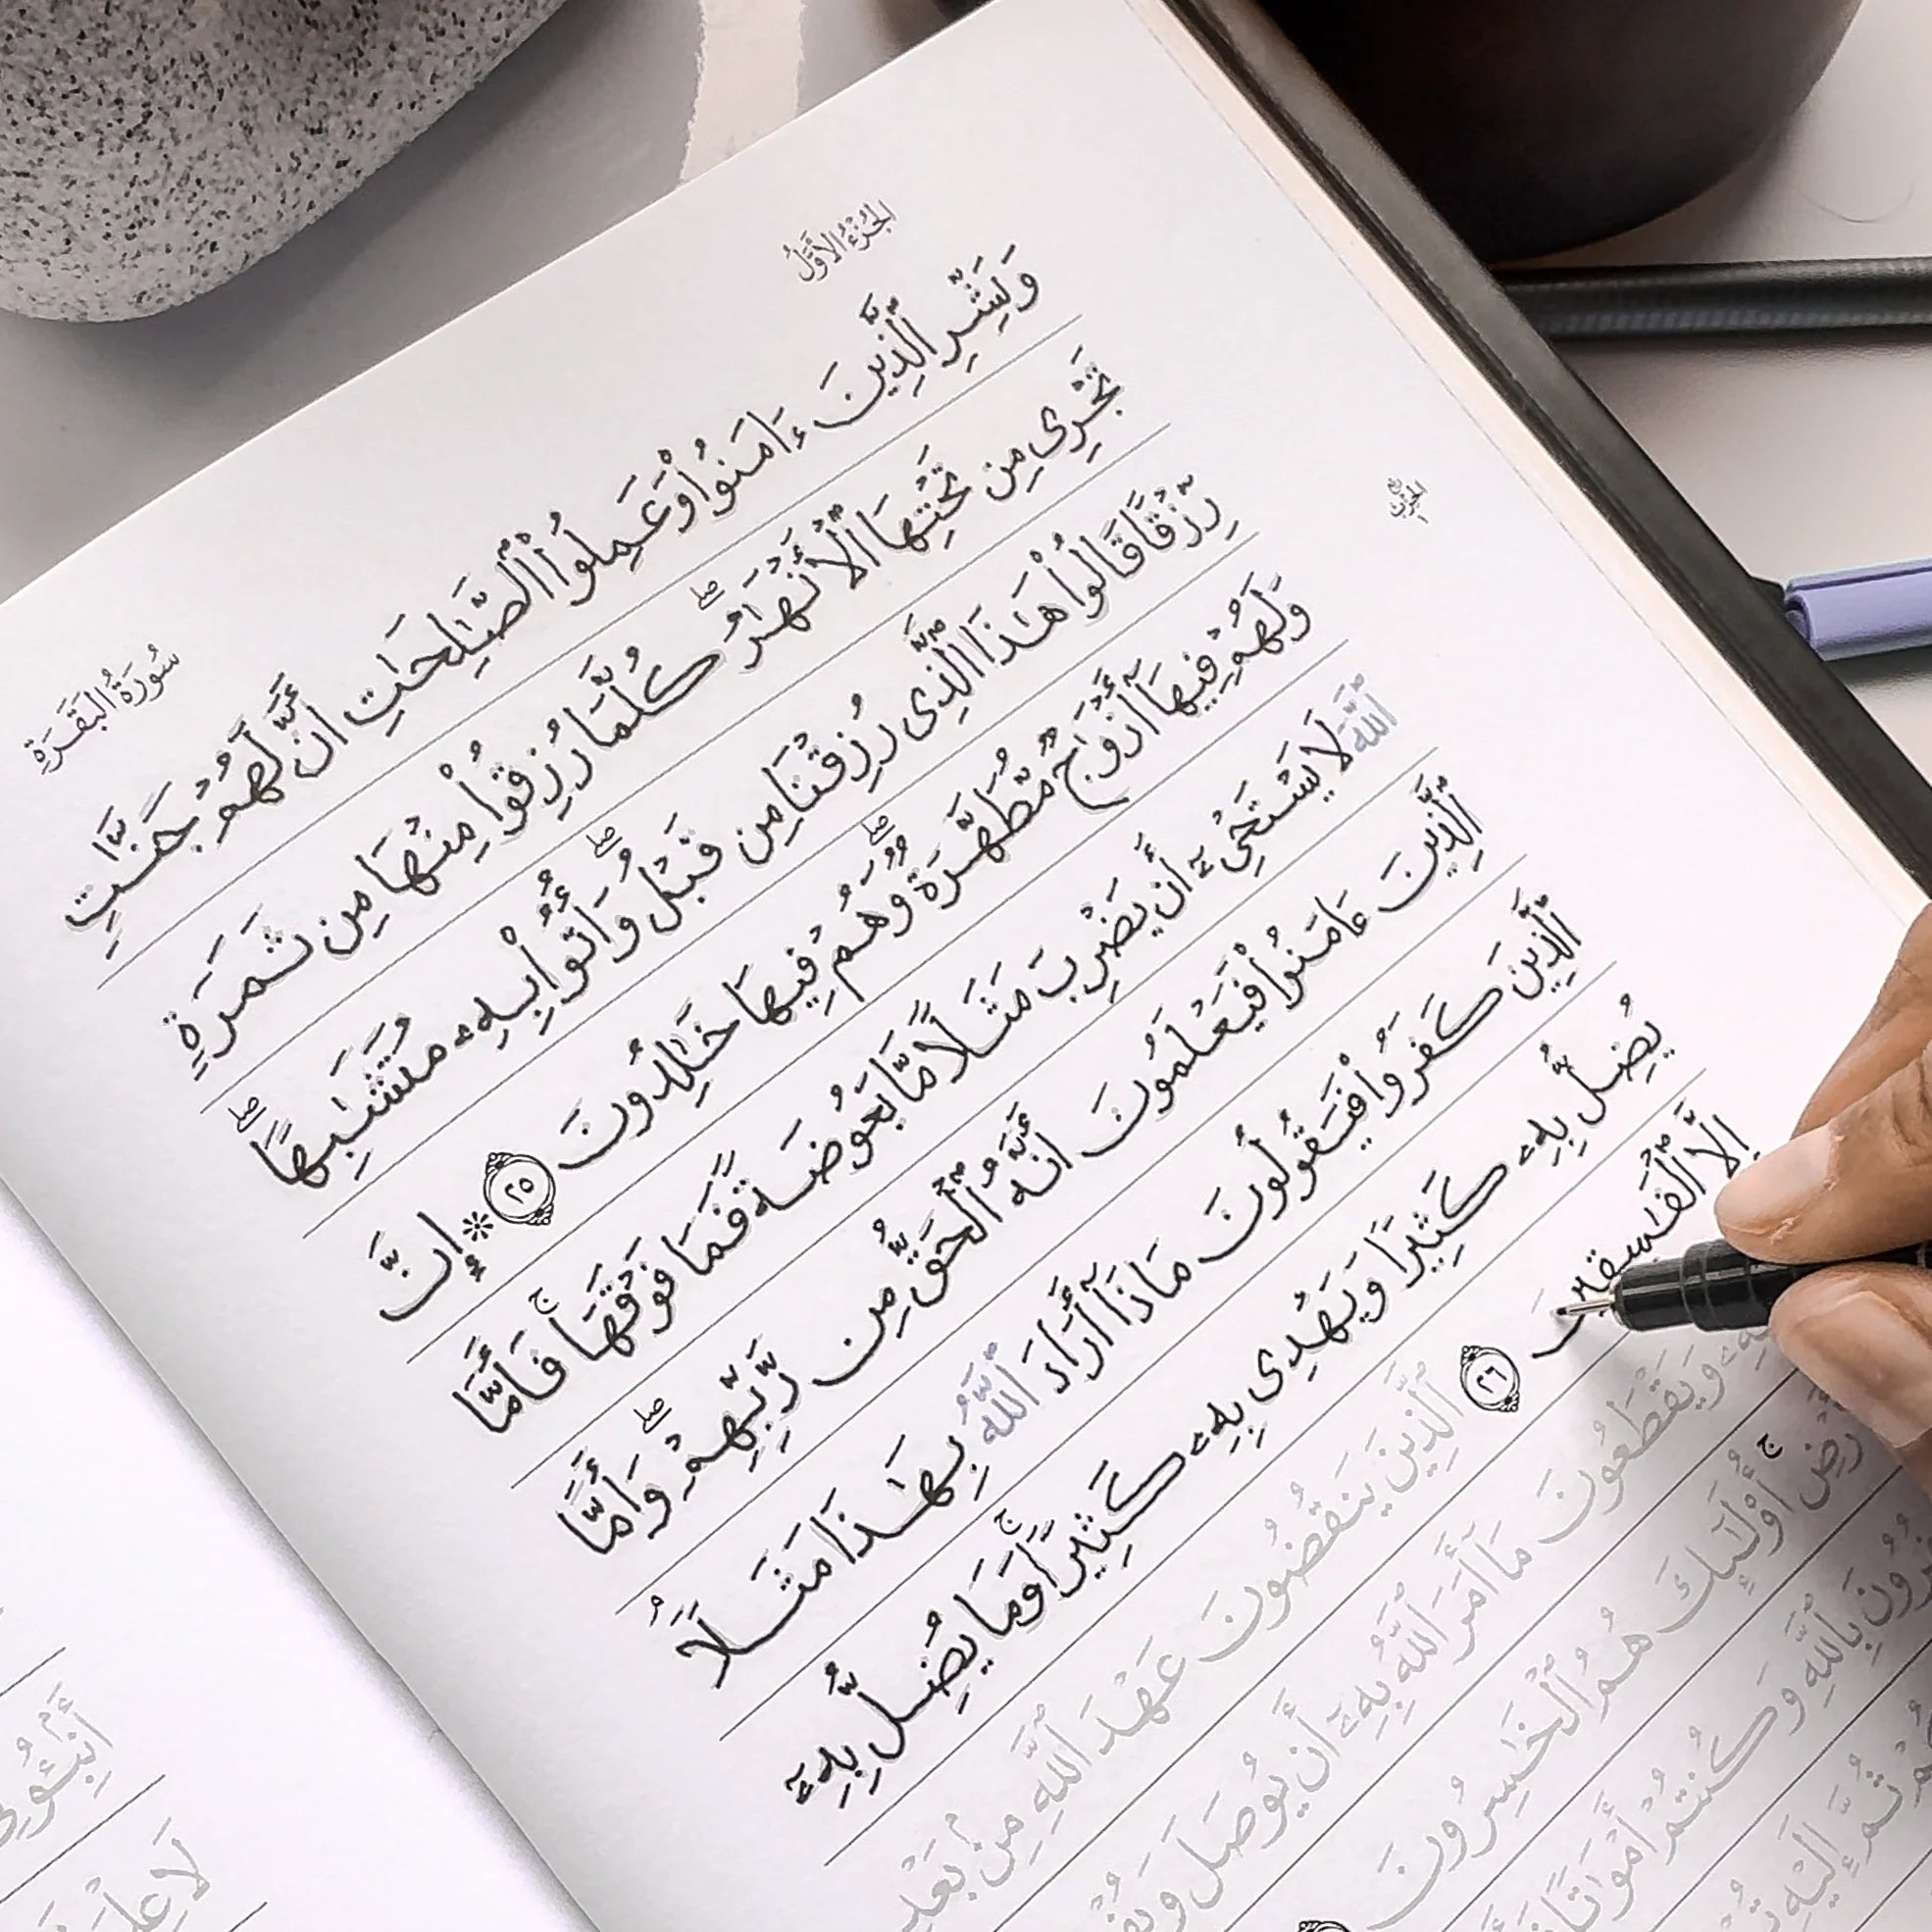 الجُزْءُ الأَوَّلُ
سُورَةُ البَقَرَةِ
وَبَشِّرِ ٱلَّذِينَ ءَامَنُوا۟ وَعَمِلُوا۟ ٱلصَّٰلِحَٰتِ أَنَّ لَهُمْ جَنَّٰتٍ
تَجْرِى مِن تَحْتِهَا ٱلْأَنْهَٰرُ ۖ كُلَّمَا رُزِقُوا۟ مِنْهَا مِن ثَمَرَةٍ
رِّزْقًا قَالُوا۟ هَٰذَا ٱلَّذِى رُزِقْنَا مِن قَبْلُ ۖ وَأُتُوا۟ بِهِۦ مُتَشَٰبِهًا ۖ
وَلَهُمْ فِيهَآ أَزْوَٰجٌ مُّطَهَّرَةٌ ۖ وَهُمْ فِيهَا خَٰلِدُونَ ٢٥ * إِنَّ
ٱللَّهَ لَا يَسْتَحْىِۦٓ أَن يَضْرِبَ مَثَلًا مَّا بَعُوضَةً فَمَا فَوْقَهَا ۚ فَأَمَّا
ٱلَّذِينَ ءَامَنُوا۟ فَيَعْلَمُونَ أَنَّهُ ٱلْحَقُّ مِن رَّبِّهِمْ ۖ وَأَمَّا
ٱلَّذِينَ كَفَرُوا۟ فَيَقُولُونَ مَاذَآ أَرَادَ ٱللَّهُ بِهَٰذَا مَثَلًا ۘ
يُضِلُّ بِهِۦ كَثِيرًا وَيَهْدِى بِهِۦ كَثِيرًا ۚ وَمَا يُضِلُّ بِهِۦٓ
إِلَّا ٱلْفَٰسِقِينَ ٢٦ ٱلَّذِينَ يَنقُضُونَ عَهْدَ ٱللَّهِ مِنۢ بَعْدِ
وَيَقْطَعُونَ مَآ أَمَرَ ٱللَّهُ بِهِۦٓ أَن يُوصَلَ
ۚ أُو۟لَٰٓئِكَ هُمُ ٱلْخَٰسِرُونَ
بِٱللَّهِ وَكُنتُمْ أَمْوَٰتًا
ثُمَّ إِلَيْهِ